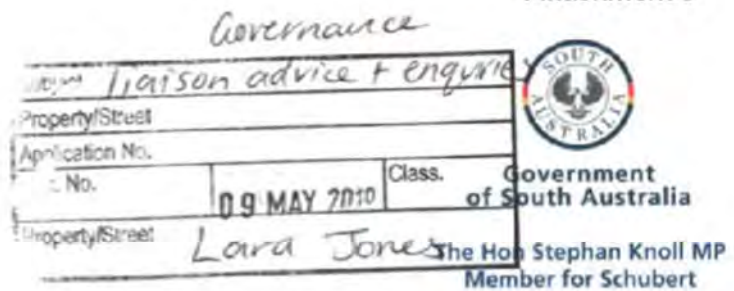 Governance
liaison advice + enquiries
Property/Street
Application No.
No.
09 MAY 2010
Class.
Property/Street
Lara Jones
SOUTH AUSTRALIA
Government
of South Australia
The Hon Stephan Knoll MP
Member for Schubert